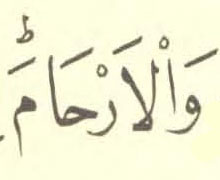 وَالْاَرْحَامَؕ